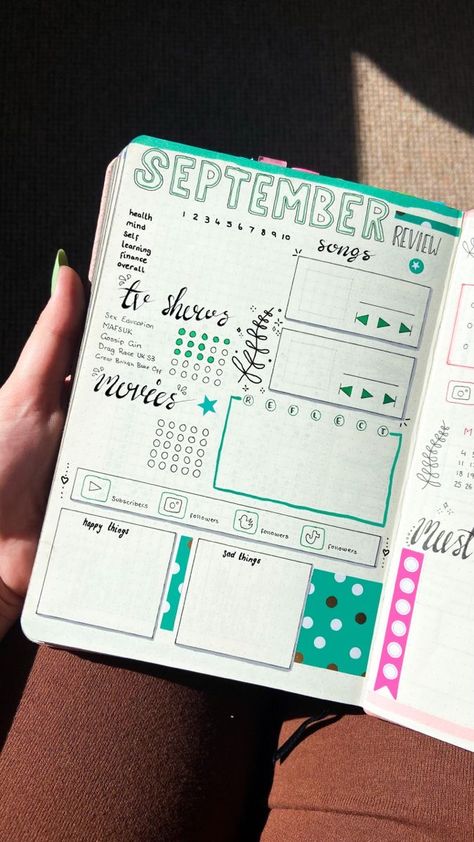 SEPTEMBER
REVIEW
1 2 3 4 5 6 7 8 9 10
health
mind
self
learning
finance
overall
songs
tv shows
Sex Education
MAFSUK
Gossip Girl
Drag Race UK S3
Great British Bake Off
movies
REFLECT
Subscribers
followers
followers
followers
happy things
sad things
M
4
11
18
25 26